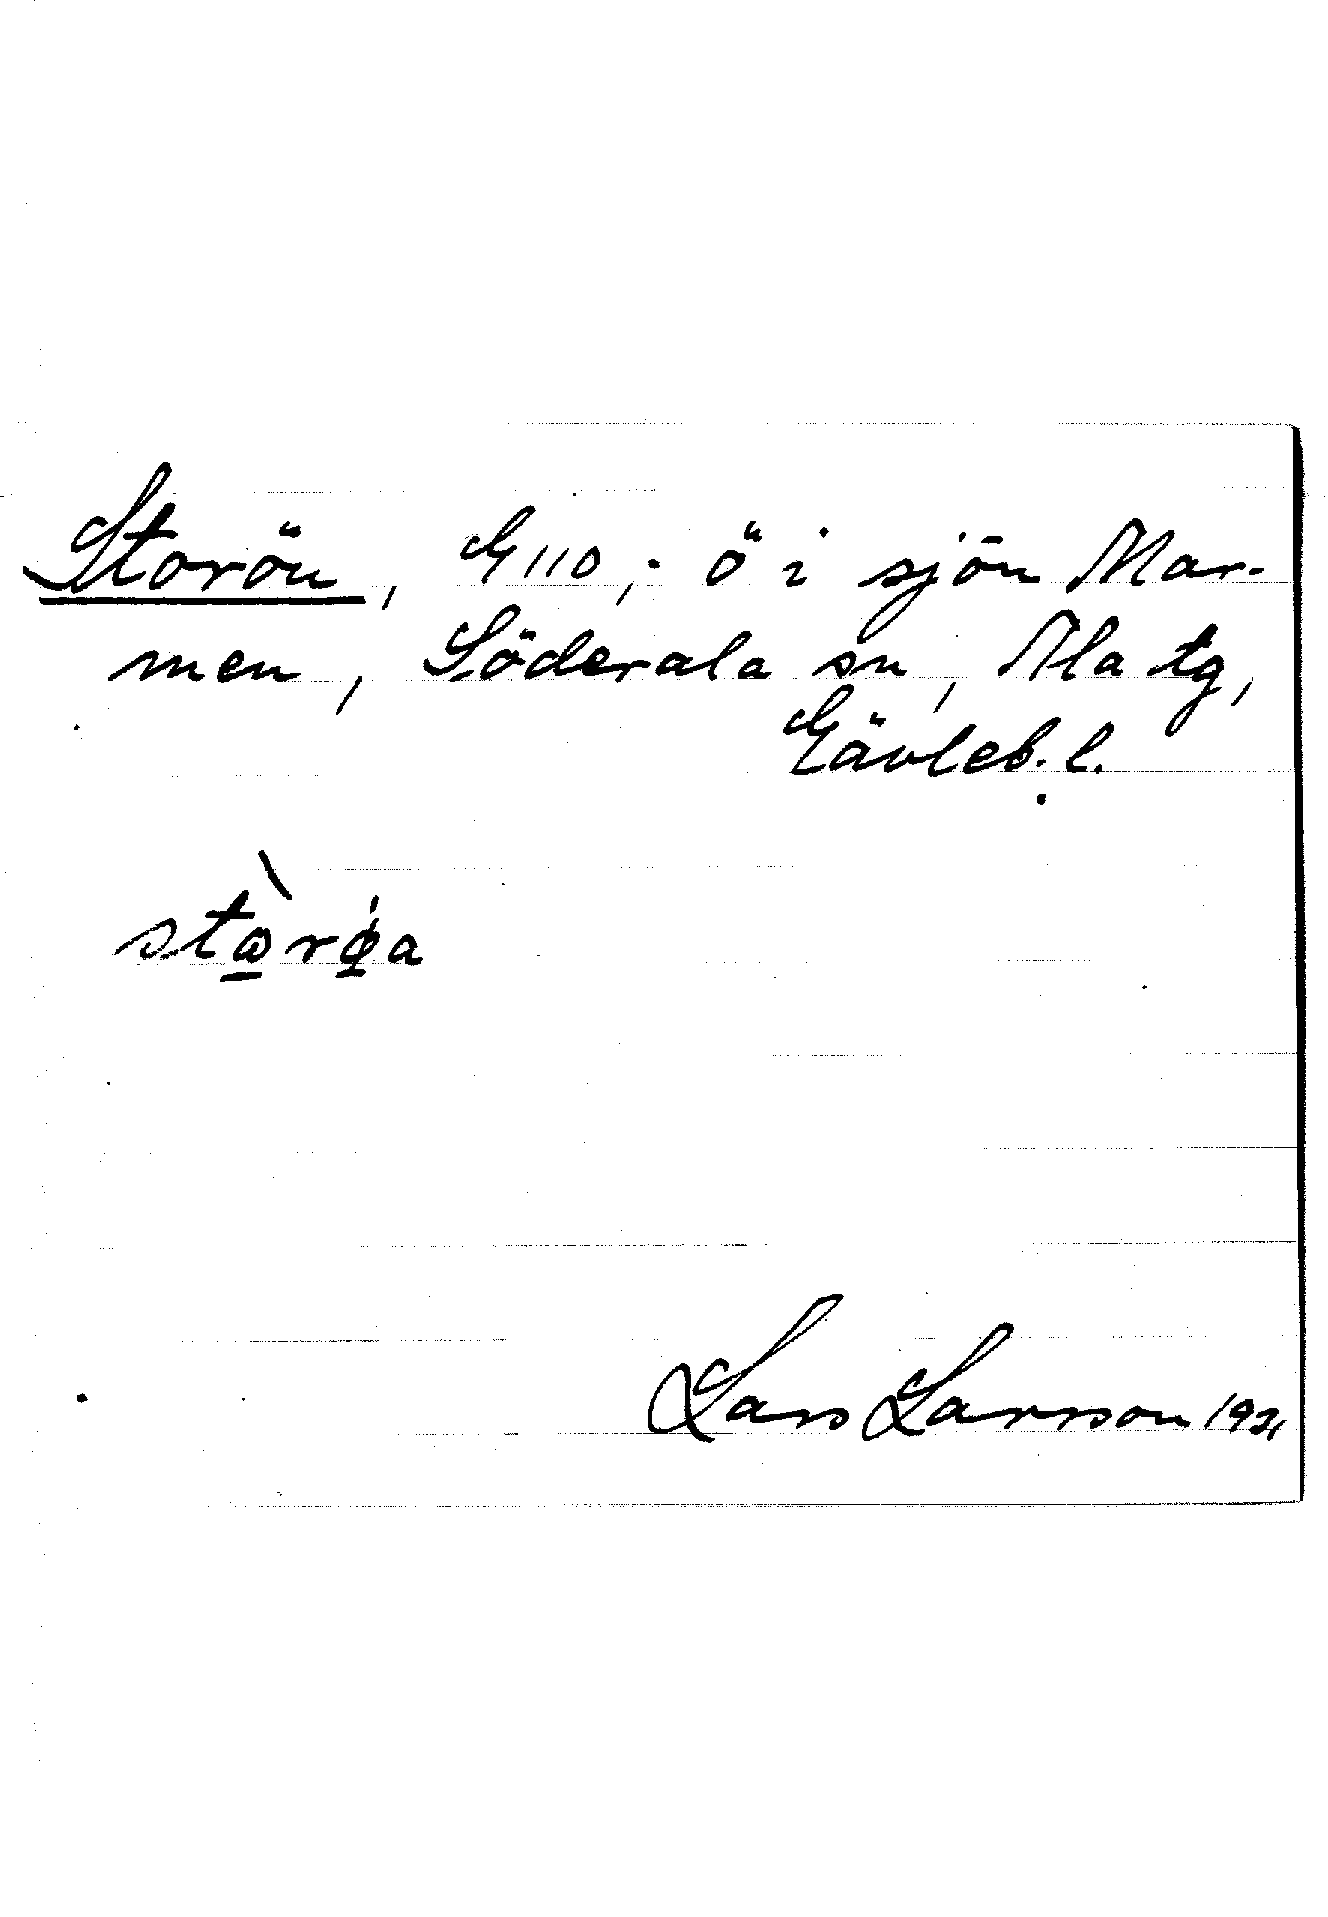 Storön, G 110, ö i sjön Mar-
men, Söderala sn, Ala tg,
Gävleb. l.
Lars Larsson 192